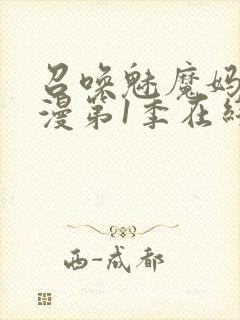 召唤魅魔妈
漫第1季在
西-成都